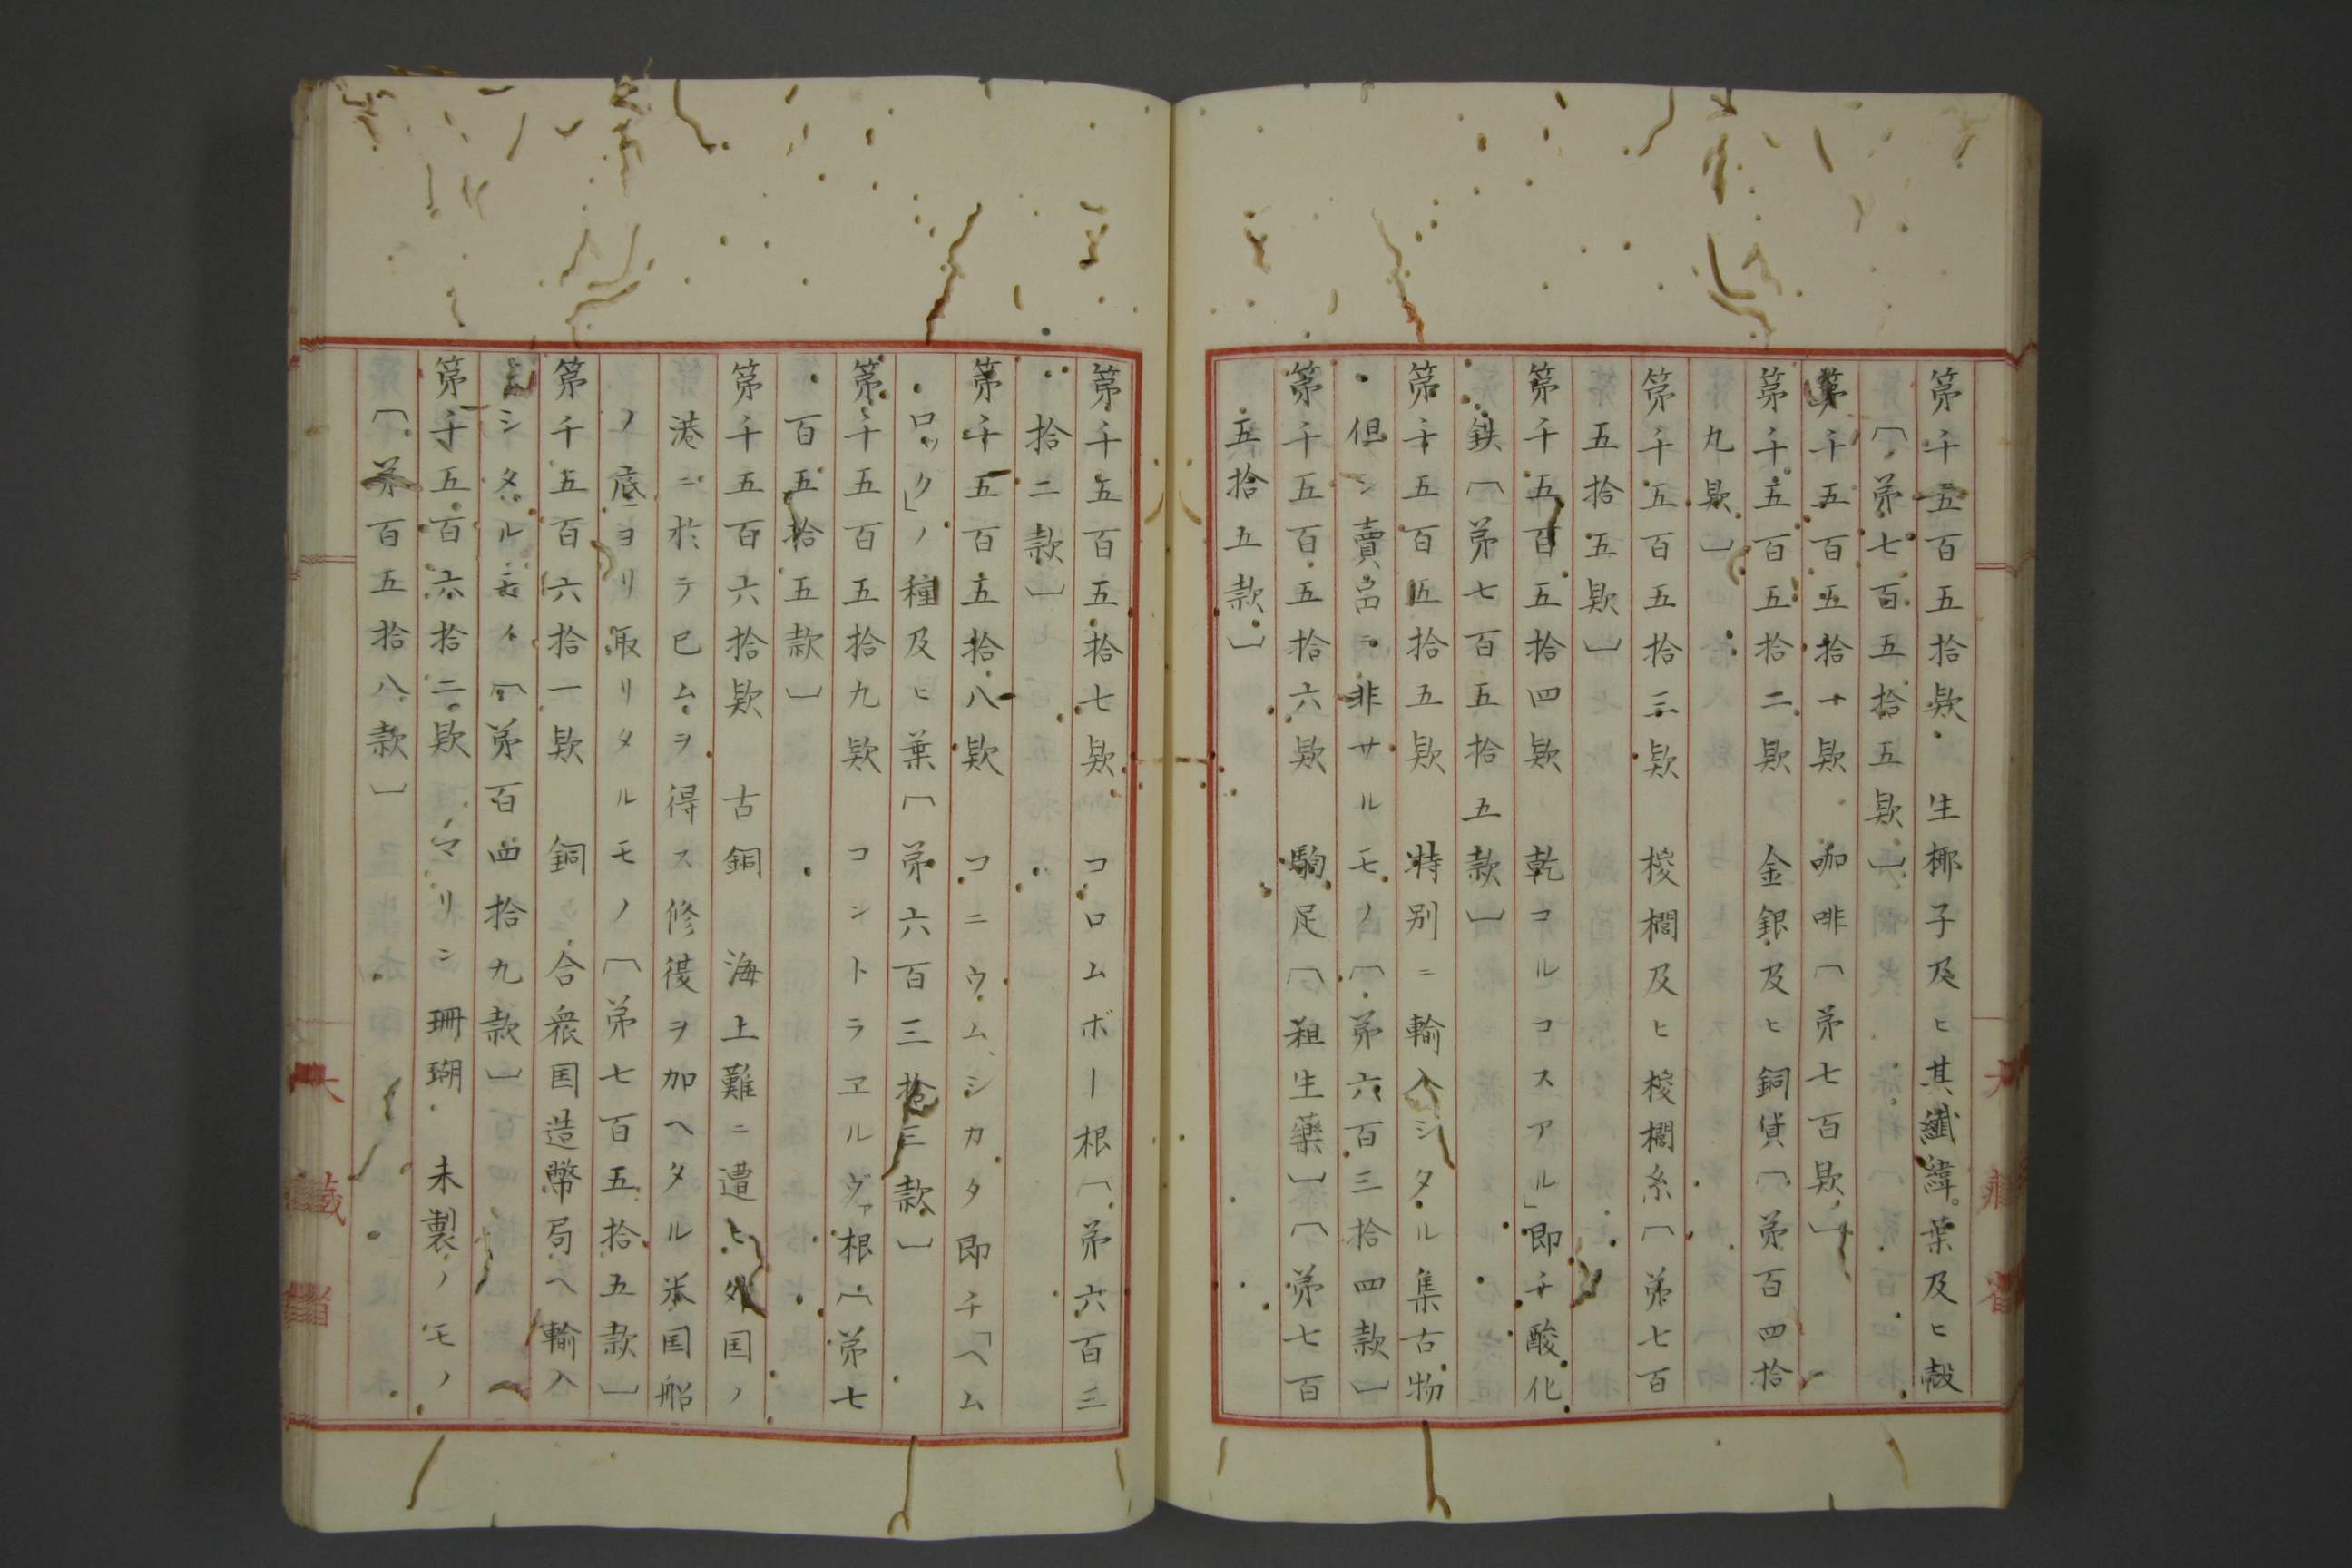 第千五百五拾欵　生椰子及ヒ其纎緯葉及ヒ殻
〔第七百五拾五欵〕
第千五百五拾一欵　咖啡〔第七百欵〕
第千五百五拾二欵　金銀及ヒ銅貨〔第百四拾
九欵〕
第千五百五拾三欵　椶櫚及ヒ椶櫚糸〔第七百
五拾五欵〕
第千五百五拾四欵　乾コルコスアル」即チ酸化
鉄〔第七百五拾五款〕
第千五百五拾五欵　特別ニ輸入シタル集古物
但シ賣品ニ非サルモノ〔第六百三拾四款〕
第千五百五拾六欵　駒足〔粗生藥〕〔第七百
五拾五款〕
第千五百五拾七欵　コロムボー根〔第六百三
拾二款〕
第千五百五拾八欵　コニウムシカタ即チ「ヘム
ロック」ノ種及ヒ葉〔第六百三拾三款〕
第千五百五拾九欵　コントラヱルヴァ根〔第七
百五拾五款〕
第千五百六拾欵　古銅　海上難ニ遭ヒ外国ノ
港ニ於テ已ムヲ得ス修復ヲ加ヘタル米国船
ノ底ヨリ取リタルモノ〔第七百五拾五款〕
第千五百六拾一欵　銅　合衆国造幣局ヘ輸入
シタル〔第百四拾九款〕
第千五百六拾二欵　マリン珊瑚　未製ノモノ
〔第百五拾八款〕
大藏省
大藏省